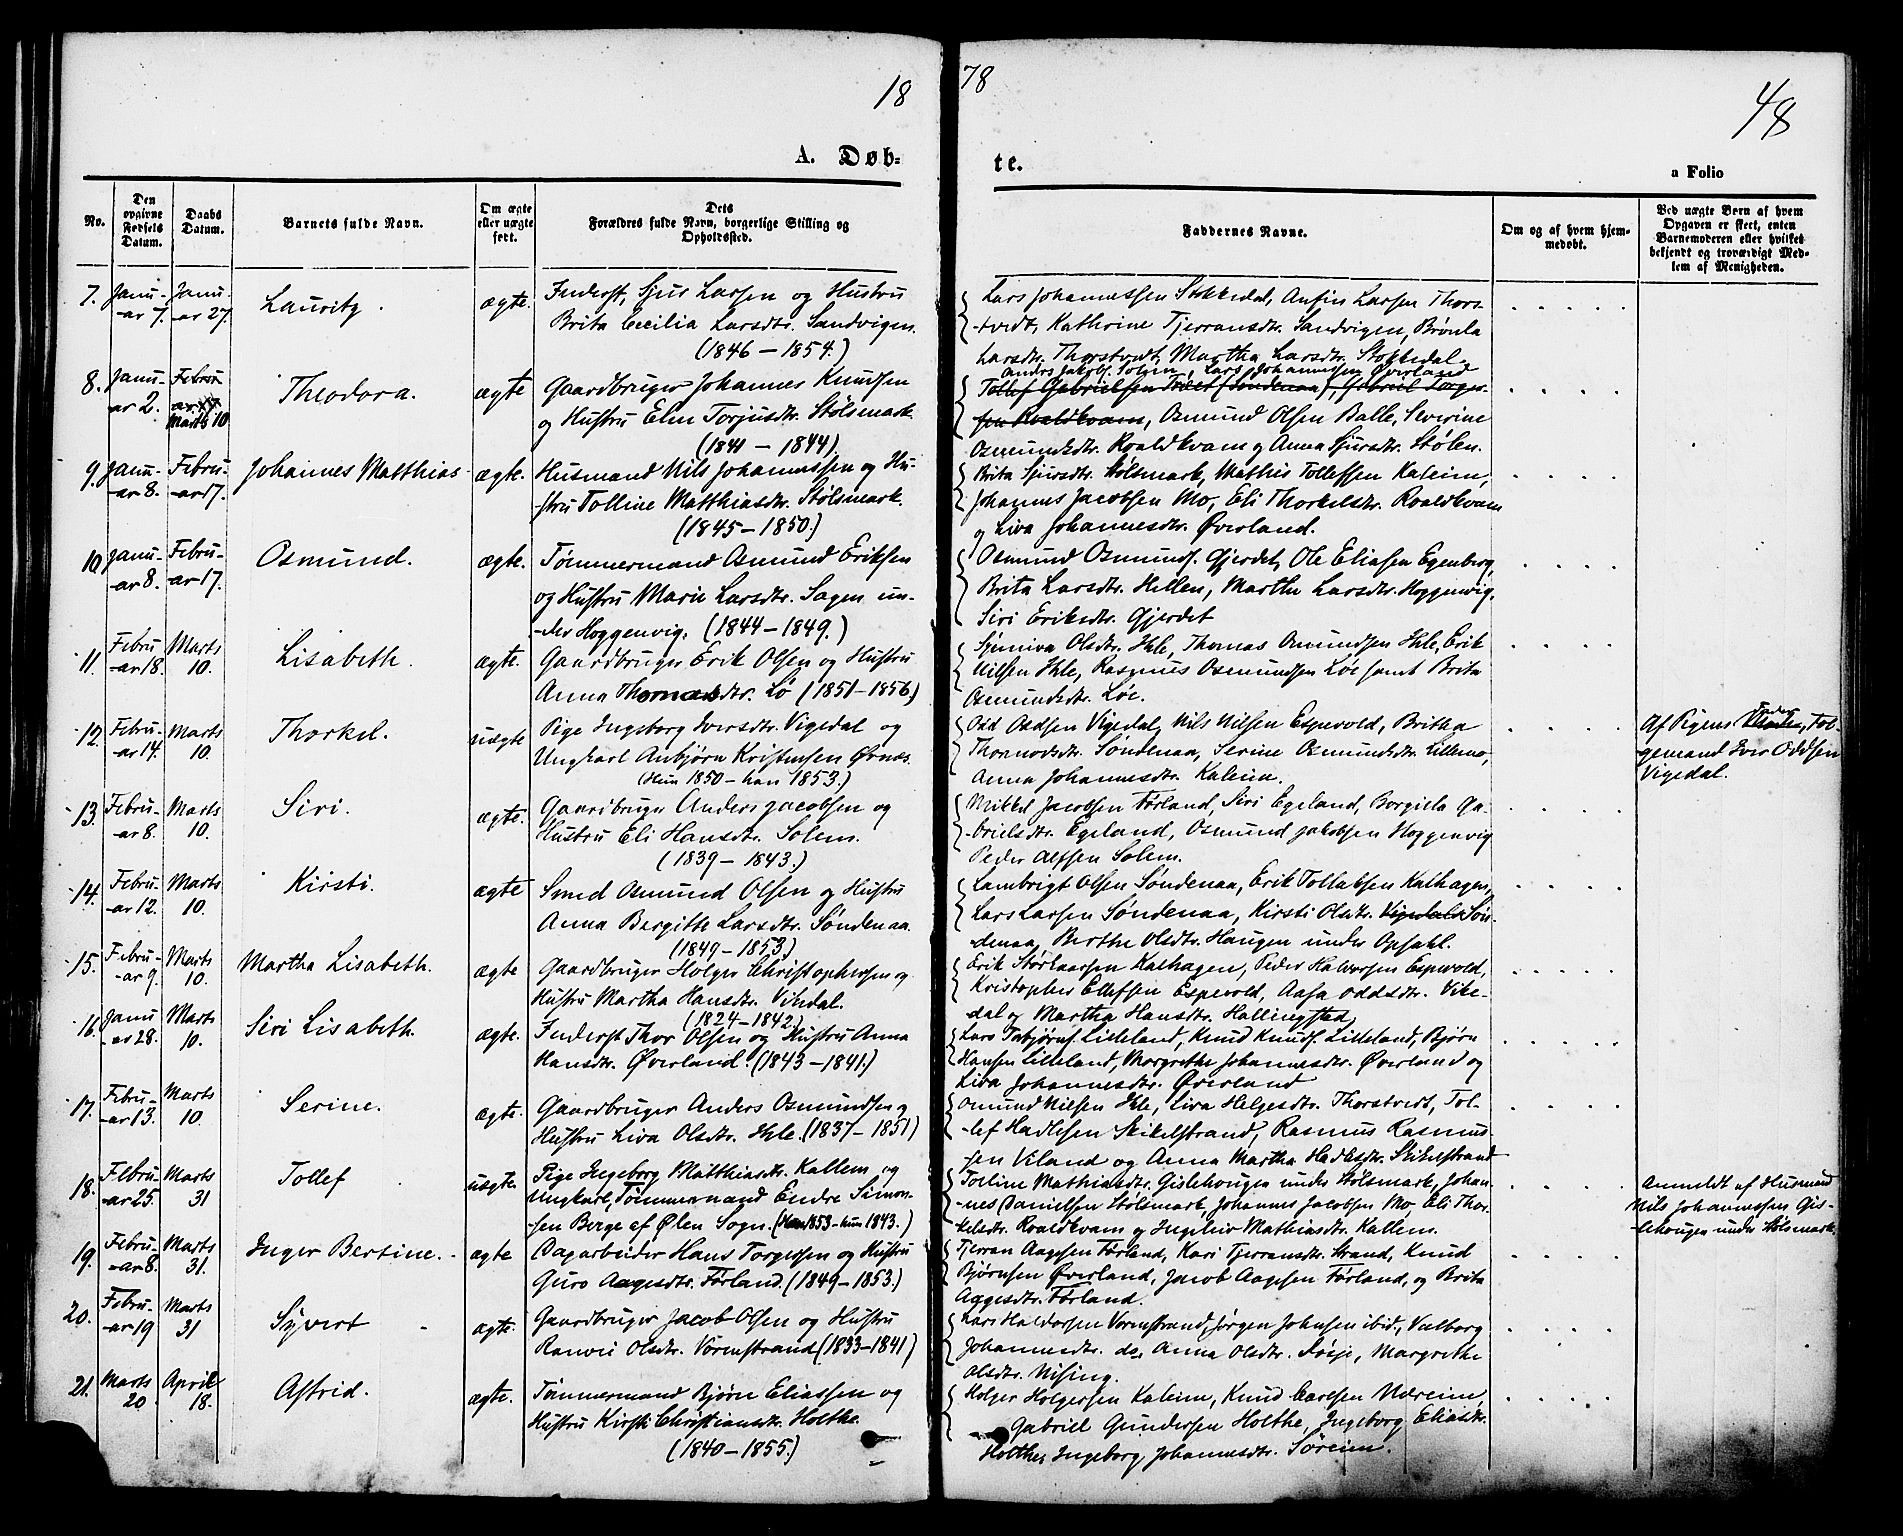 18
78
48
A. Døb-
te.
a Folio
No.
Den opgivne Fødsels Datum.
Daabs Datum.
Barnets fulde Navn.
Om ægte eller uægte født.
Dets
Forældres fulde Navn, borgerlige Stilling og
Opholdssted.
Faddernes Navne.
Om og af hvem hjem-
medøbt.
Ved uægte Børn af hvem
Opgaven er skeet, enten
Barnemoderen eller hvilket
bekjendt og troværdigt Med-
lem af Menigheden.
7. Janu-ar 7. Janu-ar 27. Lauritz. ægte. Inderst, Sjur Larsen og Hustru
Brita Cecilia Larsdtr. Sandvigen.
(1846 – 1854.)
Lars Johannessen Stokkedal, Anfin Larsen Thors-
tvedt, Kathrine Tjerransdtr. Sandvigen, Brønla
Larsdtr. Thorstvedt, Martha Larsdtr. Stokkedal.
8. Janu-ar 2. Febru-ar Marts 10. Theodora. ægte Gaardbruger Johannes Knudsen
og Hustru Elen Torjusdtr. Stølsmark.
(1841 – 1844)
Anders Jakobs. Solem, Lars Johannessen Øverland
Tollef Gabrielsen Trået (Søndenaa), Gabriel Torger-
sen Roaldkvam, Osmund Olsen Balle, Severine
Osmundsdtr. Roaldkvam og Anna Sjursdtr. Stølen.
9. Janu-ar 8. Febru-ar 17. Johannes Matthias ægte. Husmand Nils Johannessen og Hu-
stru Tolline Matthiasdtr. Stølsmark.
(1845 – 1850.)
Brita Sjursdtr. Stølsmark, Mathis Tollefsen Kaleim,
Johannes Jacobsen Mo, Eli Thorkelsdtr. Roaldkvam
og Liva Johannesdtr. Øverland.
10. Janu-ar 8. Febru-ar 17. Osmund. ægte. Tømmermand Osmund Eriksen
og Hustru Marie Larsdtr. Sagen un-
der Hoggenvig. (1844 – 1849.)
Osmund Osmunds. Gjerdet, Ole Eliasen Egenberg,
Brita Larsdtr. Hellen, Marthe Larsdtr. Hoggenvig,
Siri Eriksdtr. Gjerdet
11. Febru-ar 18. Marts 10. Lisabeth. ægte. Gaardbruger Erik Olsen og Hustru
Anna Thomasdtr. Lø (1851 – 1856.)
Sjønniva Olsdtr. Hle, Thomas Osmundsen Hle, Erik
Nilsen Hle, Rasmus Osmundsen Løe samt Brita
Osmundsdtr. Løe.
12. Febru-ar 14. Marts 10. Thorkel. uægte Pige Ingeborg Iversdtr. Vigedal og
Ungkarl Anbjørn Kristensen Ørnes.
(Hun 1850 – han 1853.)
Odd Oddsen Vigedal, Nils Nilsen Espevold, Britha
Thormodsdtr. Søndenaa, Serine Osmundsdtr. Lillemo,
Anna Johannesdtr. Kaleim.
Af Pigens Fader, Tol-
gemand Iver Oddsen
Vigedal.
13. Febru-ar 8. Marts 10. Siri. ægte. Gaardbruger Anders Jacobsen og
Hustru Eli Hansdtr. Solem.
(1839 – 1843.)
Mikkel Jacobsen Førland, Siri Egeland, Borgilla Ga-
brielsdtr. Egeland, Osmund Jakobsen Hoggenvig
Peder Alfsen Solem.
14. Febru-ar 12. Marts 10. Kirsti. ægte Smed Osmund Olsen og Hustru
Anna Bergitte Larsdtr. Søndenaa.
(1849 – 1853)
Lambrigt Olsen Søndenaa, Erik Tollabsen Kalhagen,
Lars Larsen Søndenaa, Kirsti Olsdtr. Vigedal Søn-
denaa, Berthe Olsdtr. Haugen under Opsahl.
15. Febru-ar 9. Marts 10. Martha Lisabeth. ægte Gaardbruger Holger Christophersen og
Hustru Martha Hansdtr. Vikdal.
(1824 – 1842.)
Erik Størkarsen Kalhagen, Peder Halvorsen Espevold,
Kristopher Ellefsen Espevold, Aasa Oddsdtr. Vike-
dal og Martha Hansdtr. Hallingstad
16. Janu-ar 28. Marts 10. Siri Lisabeth. ægte. Inderst Thor Olsen og Hustru Anna
Hansdtr. Øverland. (1843 – 1841.)
Lars Torbjørns. Lilleland, Knud Knuds. Lilleland, Bjørn
Hansen Lilleland, Margrethe Johannesdtr. Øverland og
Liva Johannesdtr. Øverland
17. Febru-ar 13. Marts 10. Serine. ægte. Gaardbruger Anders Osmundsen og
Hustru Liva Olsdtr. Hle. (1837 – 1851)
Omund Nilsen Hle, Liva Helgesdtr. Thorstvedt, Tol-
lef Hadlesen Skikelstrand, Rasmus Rasmus-
sen Viland og Anna Martha Hadlesdtr. Skikelstrand
18. Febru-ar 25. Marts 31 Tollef uægte. Pige Ingeborg Matthiasdtr. Kallem og
Ungkarl, Tømmermand Endre Simon-
sen Berge af Ølen Sogn. (Han 1853 – hun 1843.)
Torline Mathiasdtr. Gislehougen under Stølsmark, Johan-
nes Danielsen Stølsmark, Johannes Jacobsen Mo, Eli Thor-
kelsdtr. Roaldkvam og Ingeliv Mathiasdtr. Kallem.
Anmeldt af Husmand
Nils Johannessen Gis-
lehougen under Stølsmark.
19. Febru-ar 8. Marts 31. Inger Bertine. ægte Dagarbeider Hans Torgersen og Hustru
Guro Aagesdtr. Førland. (1849 – 1853.)
Tjerran Aagesen Førland, Kari Tjerransdtr. Strand, Knud
Bjørnsen Øverland, Jacob Aagesen Førland, og Brita
Aagesdtr. Førland.
20. Febru-ar 19 Marts 31 Syvert ægte. Gaardbruger Jacob Olsen og Hustru
Ranvei Olsdtr. Vormestrand (1833 – 1841)
Lars Haldorsen Vormestrand, Jørgen Johnsen ibid., Valborg
Johannesdtr. do, Anna Olsdtr. Frøje, Margrethe
Olsdtr. Nising.
21. Marts 20 April 18. Astrid. ægte. Tømmermand Bjørn Eliassen og
Hustru Kirsti Christiansdtr. Holthe.
(1840 – 1855.)
Holger Holgersen Kaleim, Knud Carlsen Nereim
Gabriel Gundersen Holthe, Ingeborg Eliasdtr.
Holthe, Ingeborg Johannesdtr. Søreim.